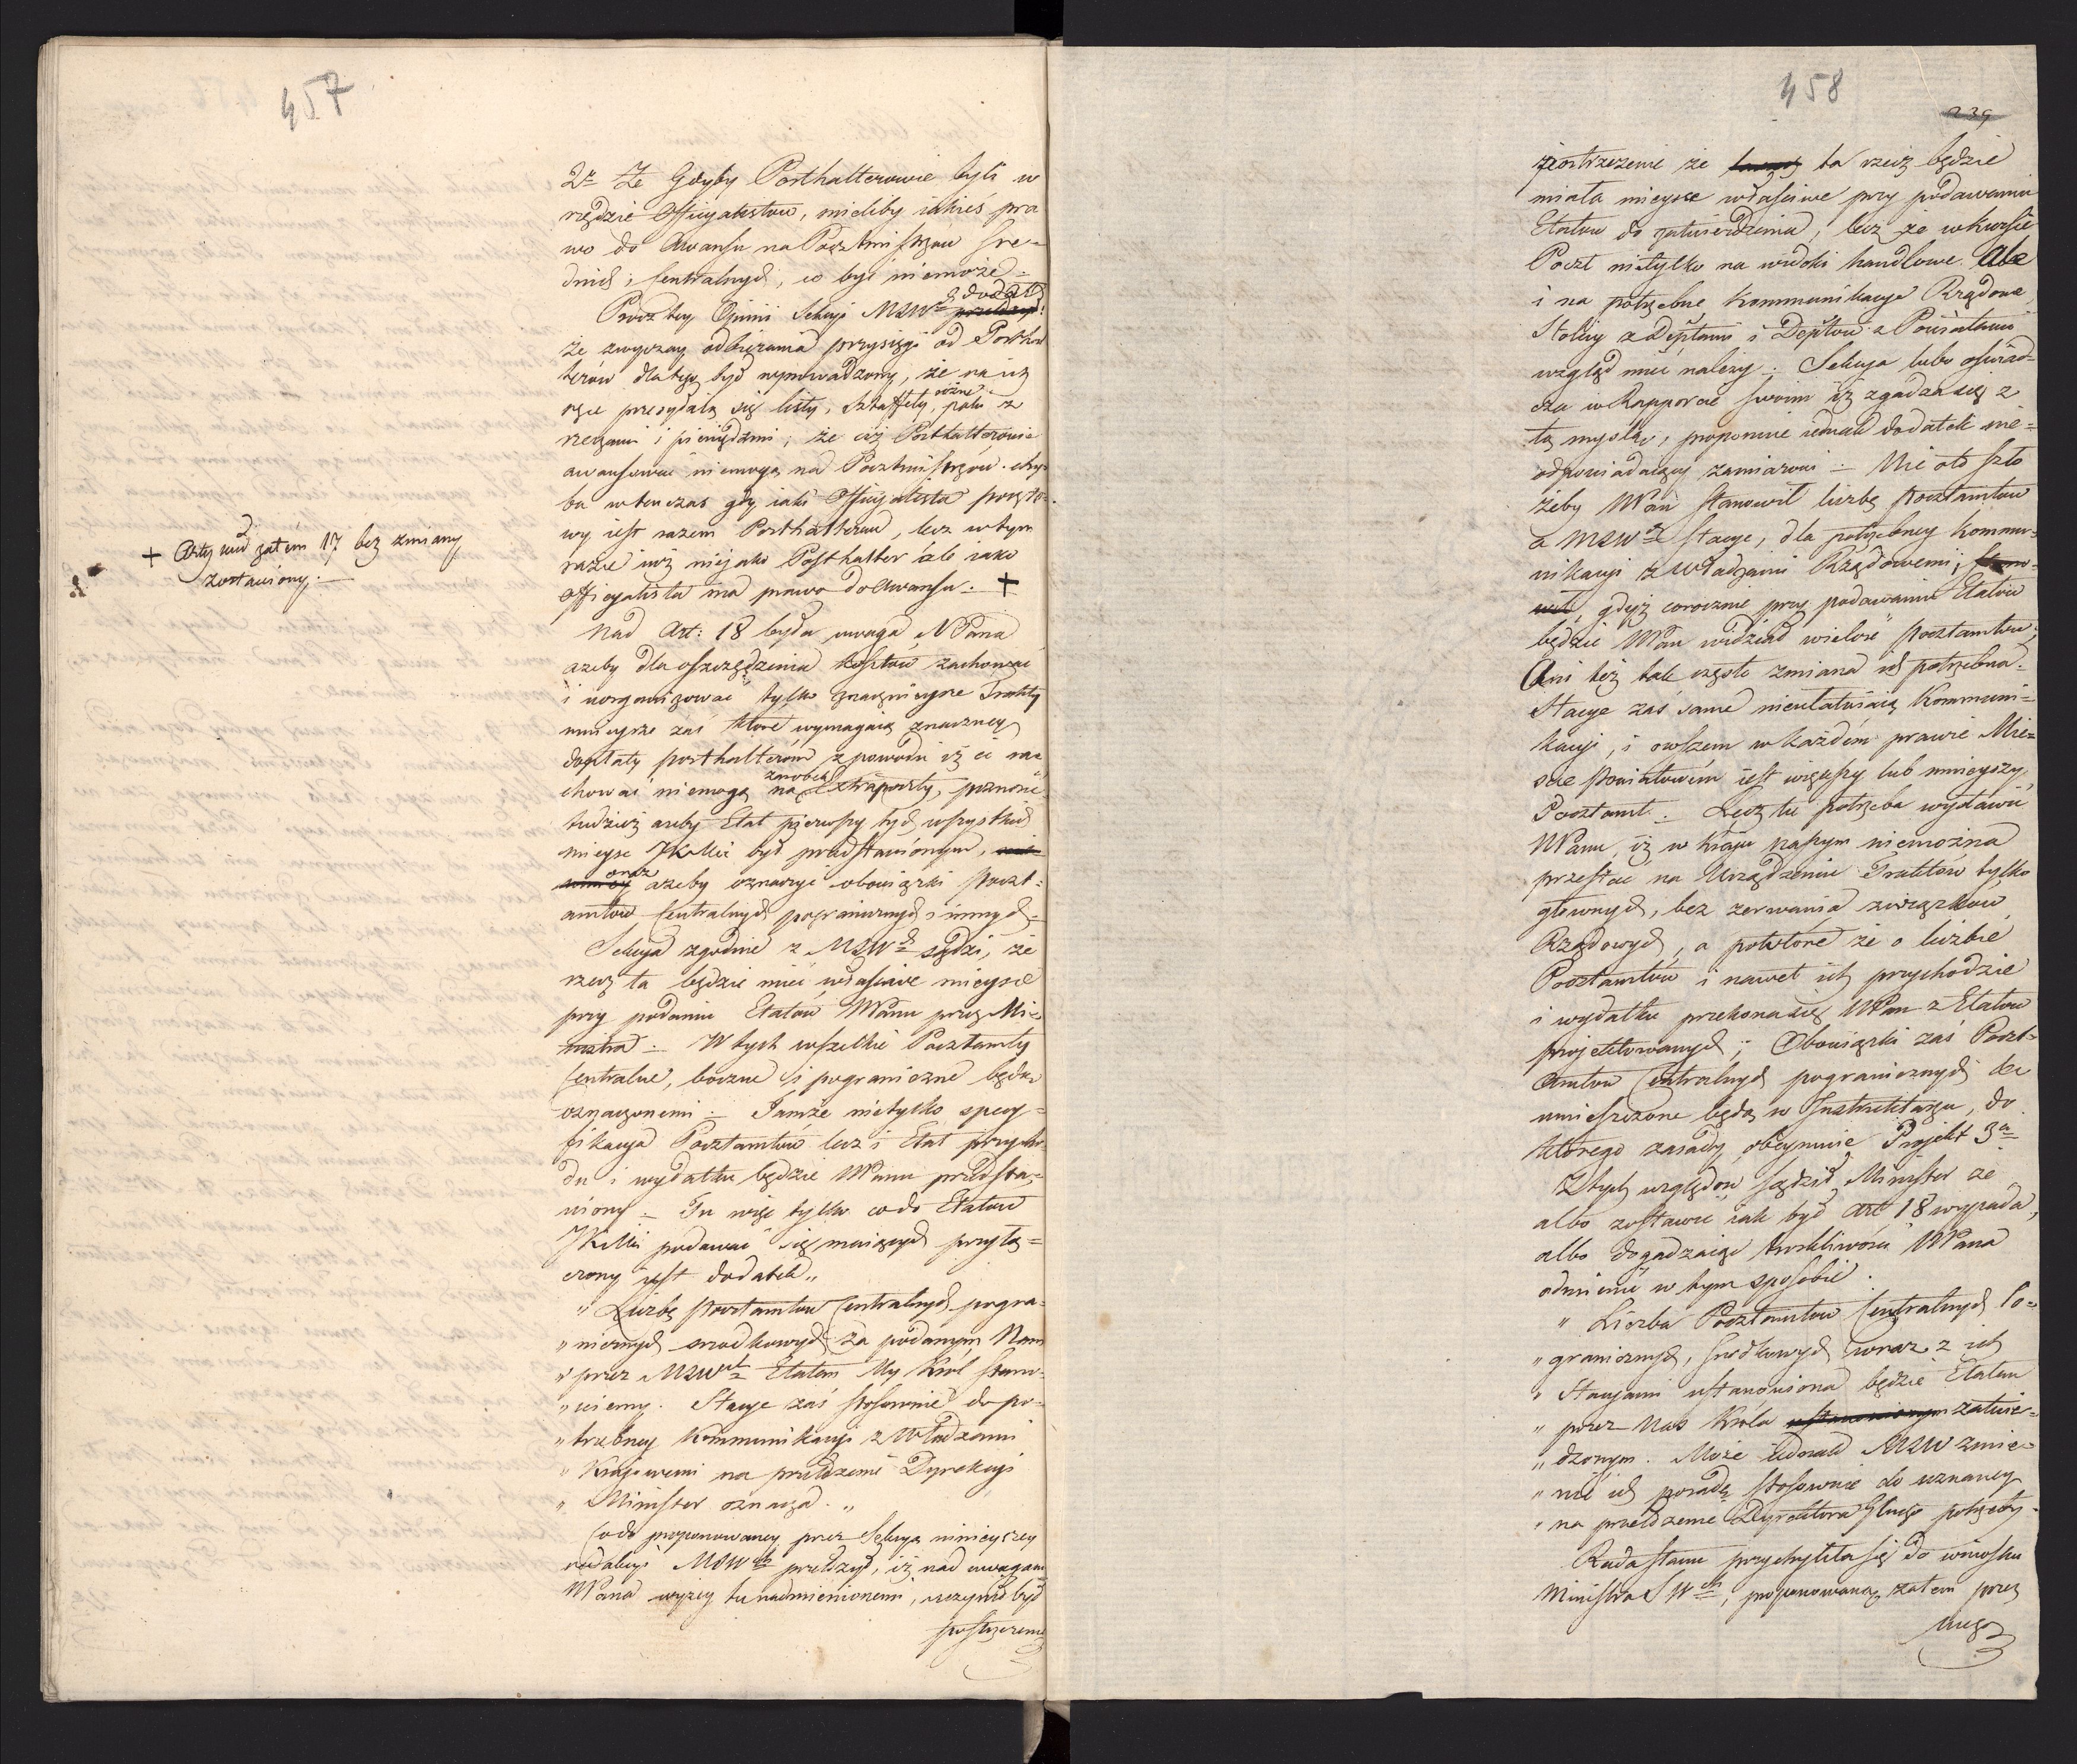 457
2re Że Gdyby Posthalterowie byli w
rzędzie Officyalistow, mieliby iakieś pra
wo do Awansu na Pocztmistrzów Sre-
dnich i Centralnych, co być niemoże.
Procz tey Opinii Sekcyi MSW dodał
że zwyczay odbierania przysięgi od Posthal
terów dla tego był wprowadzony, że na ich
ręce przesyłaią się listy, Sztaffety, różne paki z
rzeczami i pieniędzmi; że ciż Posthalterowie
awansować niemogą na Pocztmistrzów chy-
ba wtenczas gdy iaki Officyalista poczto-
wy iest razem Posthalterem, lecz w tym
razie iuż nie jako Posthalter ale iako
Officyalista ma prawo do Awansu. +
+ Arty zatém 17 bez zmiany
zostawiony.
Nad Art: 18 była uwaga NPana
ażeby dla oszczędzenia kosztów zachować
i uorganizować tylko znacznieysze Trakty
mnieysze zaś które wymagaią znaczney
dopłaty posthalterom z powodu iż ci ra-
chować niemogą na zarobek Extrapoczty, poznosić
tudzież ażeby Etat pierwszy tych wszystkich
mieysc JKMci był przedstawionym,
oraz ażeby oznaczyć obowiązki Poczt-
amtów Centralnych pogranicznych i innych.
Sekcya zgodnie z MSW sądzi, że
rzecz ta będzie mieć właściwe mieysce
przy podaniu Etatów NPanu przez Mi-
nistra. W tych wszelkie Pocztamty
Centralne, boczne i pograniczne będą
oznaczonemi. Tamże nietylko specy-
fikacya Pocztamtów lecz i Etat przycho-
du i wydatku będzie NPanu przedsta-
wiony. Tu więc tylko co do Etatów
JKMci podawać się maiących przyłą-
czony iest dodatek„
„ Liczbę Pocztamtow Centralnych pogra-
„ nicznych srodkowych za podanym Nam
„ przez MSW Etatem My Król stano-
„ wiemy. Stacye zaś stosownie do po-
„ trzebney kommunikacyi z Władzami
„ Kraiowemi na przełożenie Dyrekcyi
„ Minister oznacza. „
Co do proponowaney przez Sekcyą ninieyszey
redakcyi MSW przełożył, iż nad uwagami
NPana wyżey tu nadmienionemi, uczynił był
postrzeżenie
458
239
postrzeżenie że ta rzecz będzie
miała mieysce właściwe przy podawaniu
Etatow do zatwierdzenia, lecz że w kursie
Poczt nietylko na widoki handlowe Ale
i na potrzebne kommunikacye Rządowe
Stolicy z Deptami i Deptow z Powiatami
wzgląd mieć należy. Sekcya lubo oświad-
cza w Rapporcie swoim iż zgadza się z
tą myslą, proponuie iednak dodatek nie-
odpowiadaiący zamiarowi. Nie oto szło
żeby NPan stanowił liczbę pocztamtow
a MSW Stacye, dla potrzebney kommu-
nikacyi z Władzami Rządowemi;
gdyż corocznie przy podawaniu Etatow
będzie NPan widział wielosć pocztamtow;
Ani też tak częsta zmiana ich potrzebna.
Stacye zaś same nieułatwiaią Kommuni-
kacyi, i owszem w każdém prawie Mie-
scie powiatowém iest większy lub mnieyszy
Pocztamt. Lecz tu potrzeba wystawić
NPanu, iż w Kraju naszym niemożna
przestać na Urządzeniu Traktów tylko
głownych, bez zerwania związkow
Rządowych, a powtóre że o liczbie
Pocztamtów i nawet ich przychodzie
i wydatku przekona się NPan z Etatow
projektowanych; Obowiązki zaś Poczt-
Amtow Centralnych pogranicznych &c
umieszczone będą w Instruktarzu, do
którego zasady obeymuie Projekt 3ci
Z tych względów sądził Minister że
albo zostawić iak był Art 18 wypada,
albo dogadzaiąc troskliwości NPana
odmienić w tym sposobie.
„ Liczba Pocztamtow Centralnych Po-
„ granicznych, Srodkowych wraz z ich
„ Stacyami ustanowiona będzie Etatem
„ przez Nas Króla zatwier-
„ dzonym. Może iednak MSW zmie-
„ nić ich posadę stosownie do uznaney
„ na przełożenie Dyrektora Glnego potrzeby.
Rada Stanu przychyliła się do wniosku
Ministra SW, proponowaną zatem przez
niego